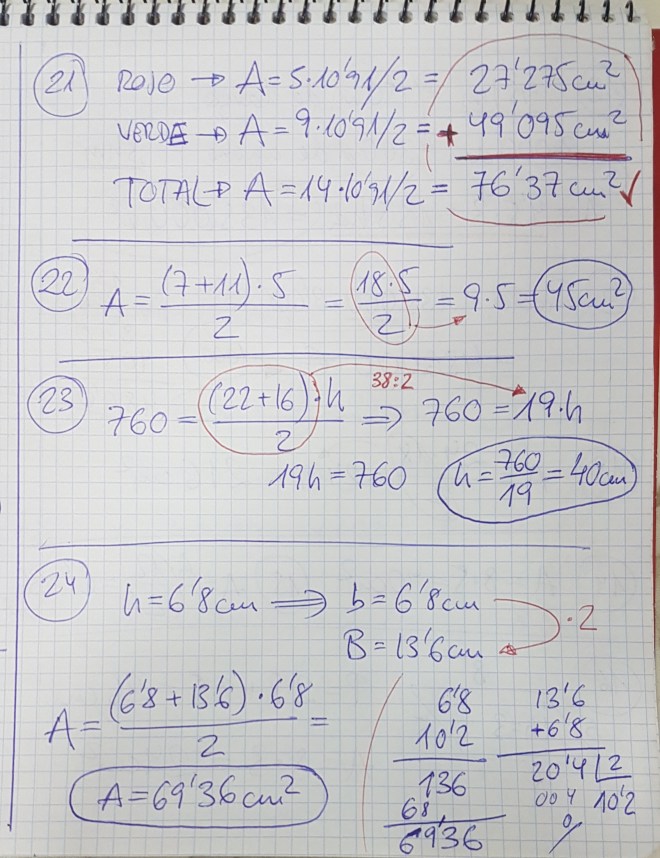 21 ROJO → A = 5·10'91/2 = 27'275 cm²
VERDE → A = 9·10'91/2 = + 49'095 cm²
TOTAL → A = 14·10'91/2 = 76'37 cm² ✓
22 A = (7+11)·5 / 2 = 18·5 / 2 = 9·5 = 45 cm²
23 760 = (22+16)·h / 2 ⇒ 760 = 19·h
38:2
19h = 760 h = 760 / 19 = 40 cm
24 h = 6'8 cm ⇒ b = 6'8 cm
·2
B = 13'6 cm
A = (6'8 + 13'6)·6'8 / 2 =
A = 69'36 cm²
6'8
10'2
136
68
69'36
13'6
+6'8
20'4 | 2
004 10'2
0